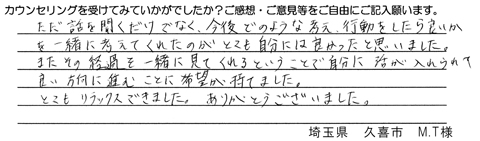 カウンセリングを受けてみていかがでしたか？ご感想・ご意見等をご自由にご記入願います。
ただ話を聞くだけでなく、今後どのような考え、行動をしたら良いか
を一緒に考えてくれたのがとても自分には良かったと思いました。
またその経過も一緒に見てくれるということで自分に活が入れられて
良い方向に進むことに希望が持てました。
とてもリラックスできました。ありがとうございました。
埼玉県 久喜市 M.T様